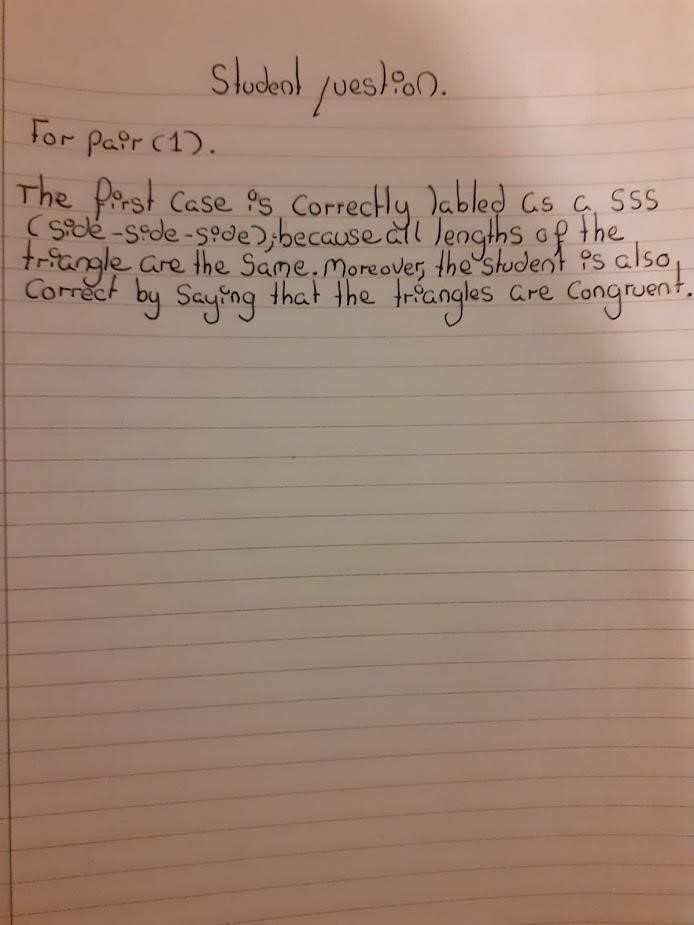 Student question.
For pair (1).
The first case is correctly labled as a SSS
(side-side-side), because all lengths of the
triangle are the same. Moreover, the student is also
correct by saying that the triangles are congruent.